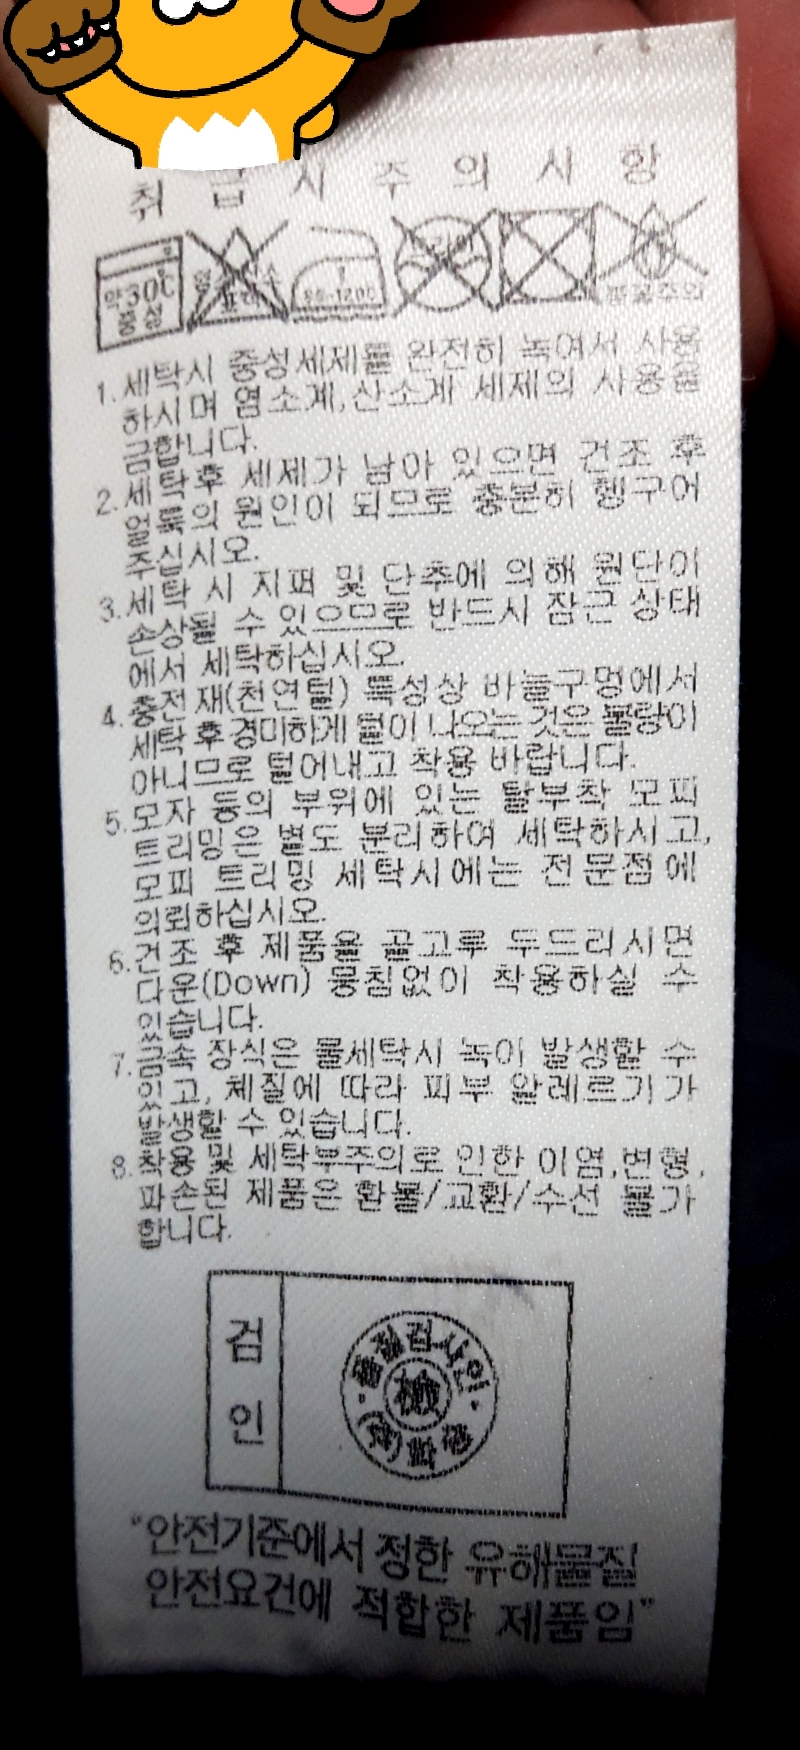 취급시주의사항
약30℃
중성
염소산소
표백
80-120℃
드라이
불꽃주의
1.세탁시 중성세제를 완전히 녹여서 사용
하시며 염소계,산소계 세제의 사용을
금합니다.
2.세탁후 세제가 남아 있으면 건조 후
얼룩의 원인이 되므로 충분히 헹구어
주십시오.
3.세탁 시 지퍼 및 단추에 의해 원단이
손상될 수 있으므로 반드시 잠근 상태
에서 세탁하십시오.
4.충전재(천연털) 특성상 바늘구멍에서
세탁 후 경미하게 털이 나오는 것은 불량이
아니므로 털어내고 착용 바랍니다.
5.모자 등의 부위에 있는 탈부착 모피
트리밍은 별도 분리하여 세탁하시고,
모피 트리밍 세탁시에는 전문점에
의뢰하십시오.
6.건조 후 제품을 골고루 두드리시면
다운(Down) 뭉침없이 착용하실 수
있습니다.
7.금속 장식은 물세탁시 녹이 발생할 수
있고, 체질에 따라 피부 알레르기가
발생할 수 있습니다.
8.착용 및 세탁부주의로 인한 이염,변형,
파손된 제품은 환불/교환/수선 불가
합니다.
검인
품질검사인
檢
"안전기준에서 정한 유해물질
안전요건에 적합한 제품임"